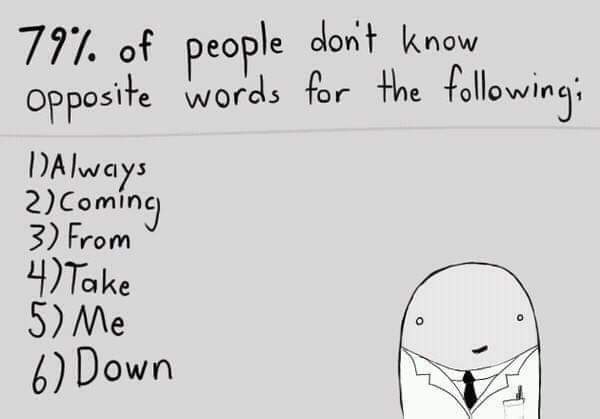 79% of people don't know
opposite words for the following;
1)Always
2)Coming
3)From
4)Take
5)Me
6)Down